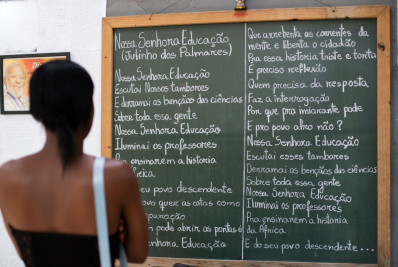 Nossa Senhora Educação
(Julinho dos Palmares)
Nossa Senhora Educação
Escutai Nossos tambores
E derramai as bençãos das ciências
Sobre toda essa gente.
Nossa Senhora Educação
Iluminai os professores
ensinarem a historia
seu povo descendente
povo quer as cotas como
abrir as portas é
Senhora Educação
Que arrebenta as correntes da
mente e liberta o cidadão
Pra essa historia triste e tonta
É preciso reflexão
Quem precisa da resposta
Faz a interrogação
Por que pra imigrante pode
E pro povo afro não?
Nossa Senhora Educação
Escutai esses tambores
Derramai as bençãos das ciências
Sobre toda essa gente
Nossa Senhora Educação
Iluminai os professores
Pra ensinarem a historia
da África
E do seu povo descendente...